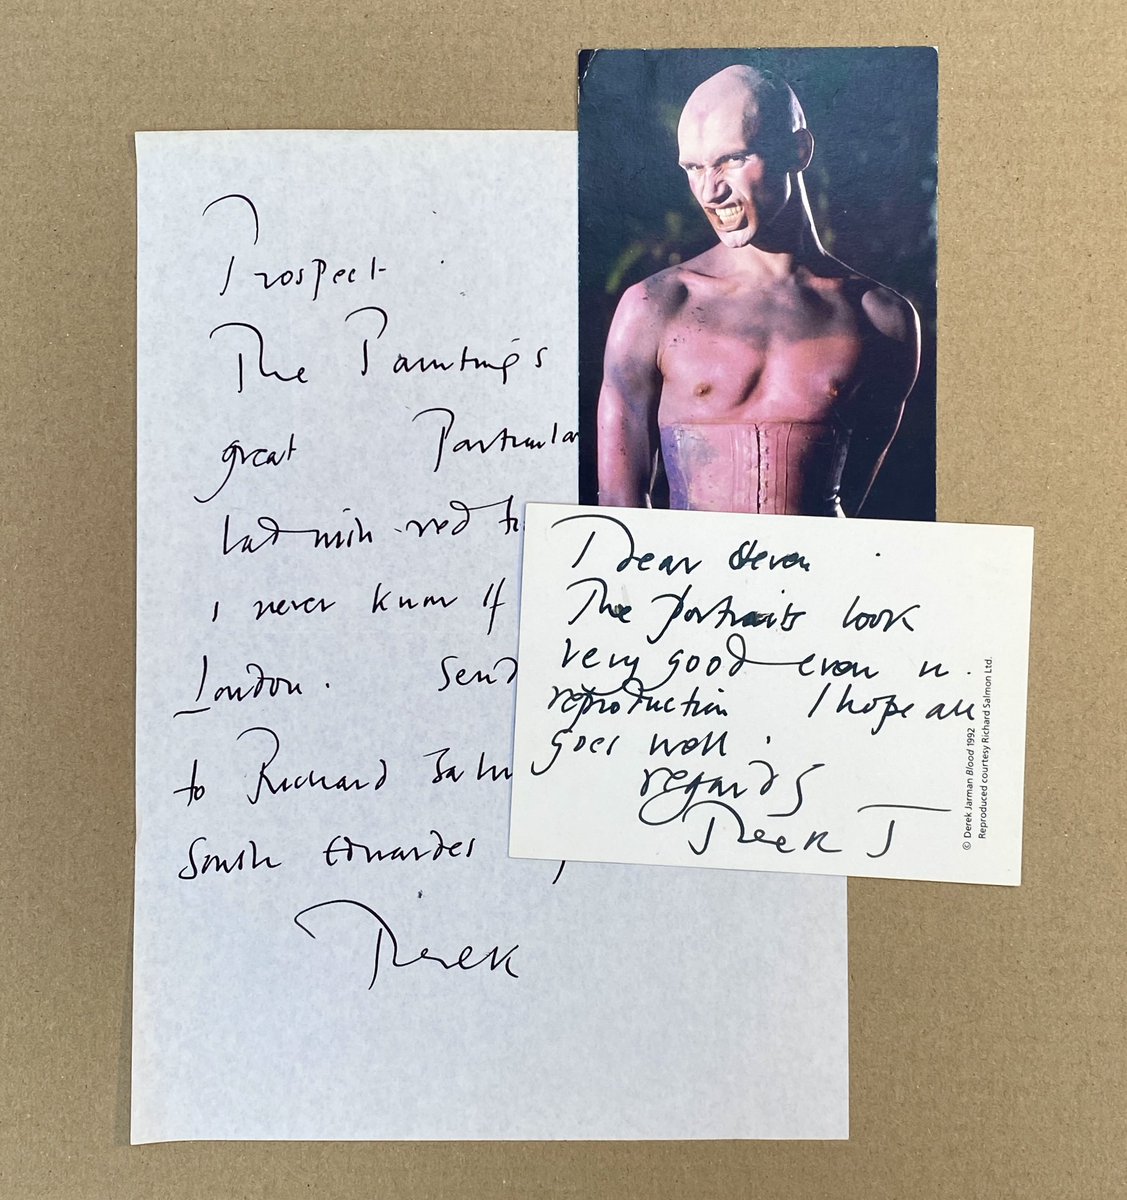 Prospect.
The Paintings
great Particular
Cadmium red
I never know if
London. Send
to Richard Salm
South Edwardes
Derek
Dear Steven.
The portraits look
very good even in
reproduction I hope all
goes well.
regards
Derek J
© Derek Jarman Blood 1992
Reproduced courtesy Richard Salmon Ltd.